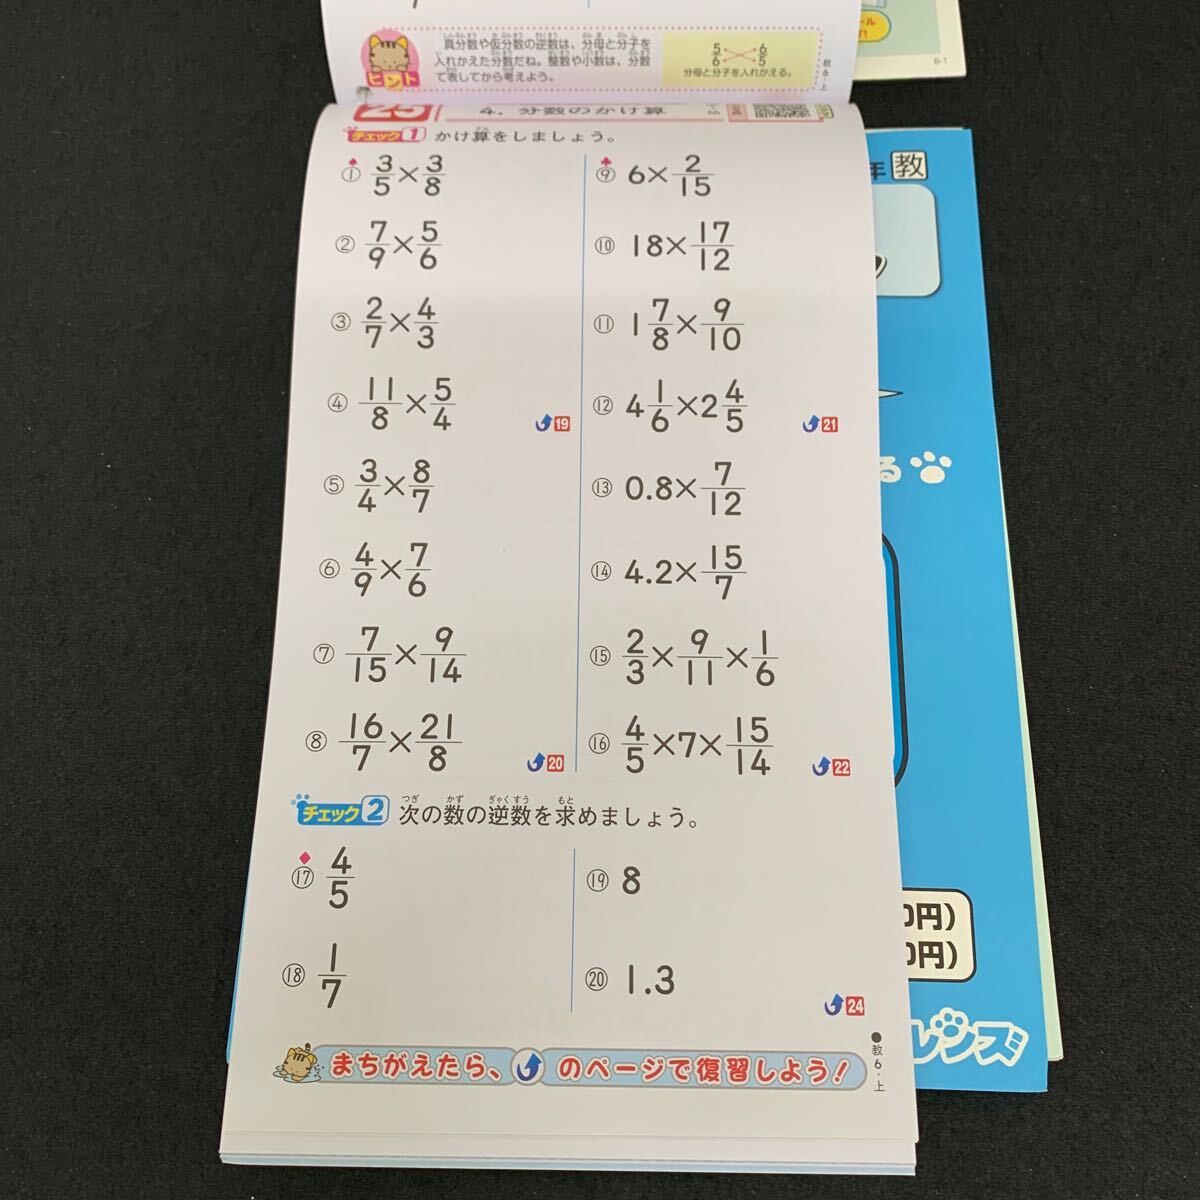 真分数や仮分数の逆数は、分母と分子を
入れかえた分数だね。整数や小数は、分数
て表してから考えよう。
ヒント
5/6 6/5
分母と分子を入れかえる。
教6・上
B-1
25
4. 分数のかけ算
チェック1 かけ算をしましょう。
① 3/5×3/8
② 7/9×5/6
③ 2/7×4/3
④ 11/8×5/4
19
⑤ 3/4×8/7
⑥ 4/9×7/6
⑦ 7/15×9/14
⑧ 16/7×21/8
20
⑨ 6×2/15
⑩ 18×17/12
⑪ 1 7/8×9/10
⑫ 4 1/6×2 4/5
21
⑬ 0.8×7/12
⑭ 4.2×15/7
⑮ 2/3×9/11×1/6
⑯ 4/5×7×15/14
22
チェック2 次の数の逆数を求めましょう。
⑰ 4/5
⑱ 1/7
⑲ 8
⑳ 1.3
24
まちがえたら、のページで復習しよう!
●教6・上
年 教
る
0円)
0円)
レンズ